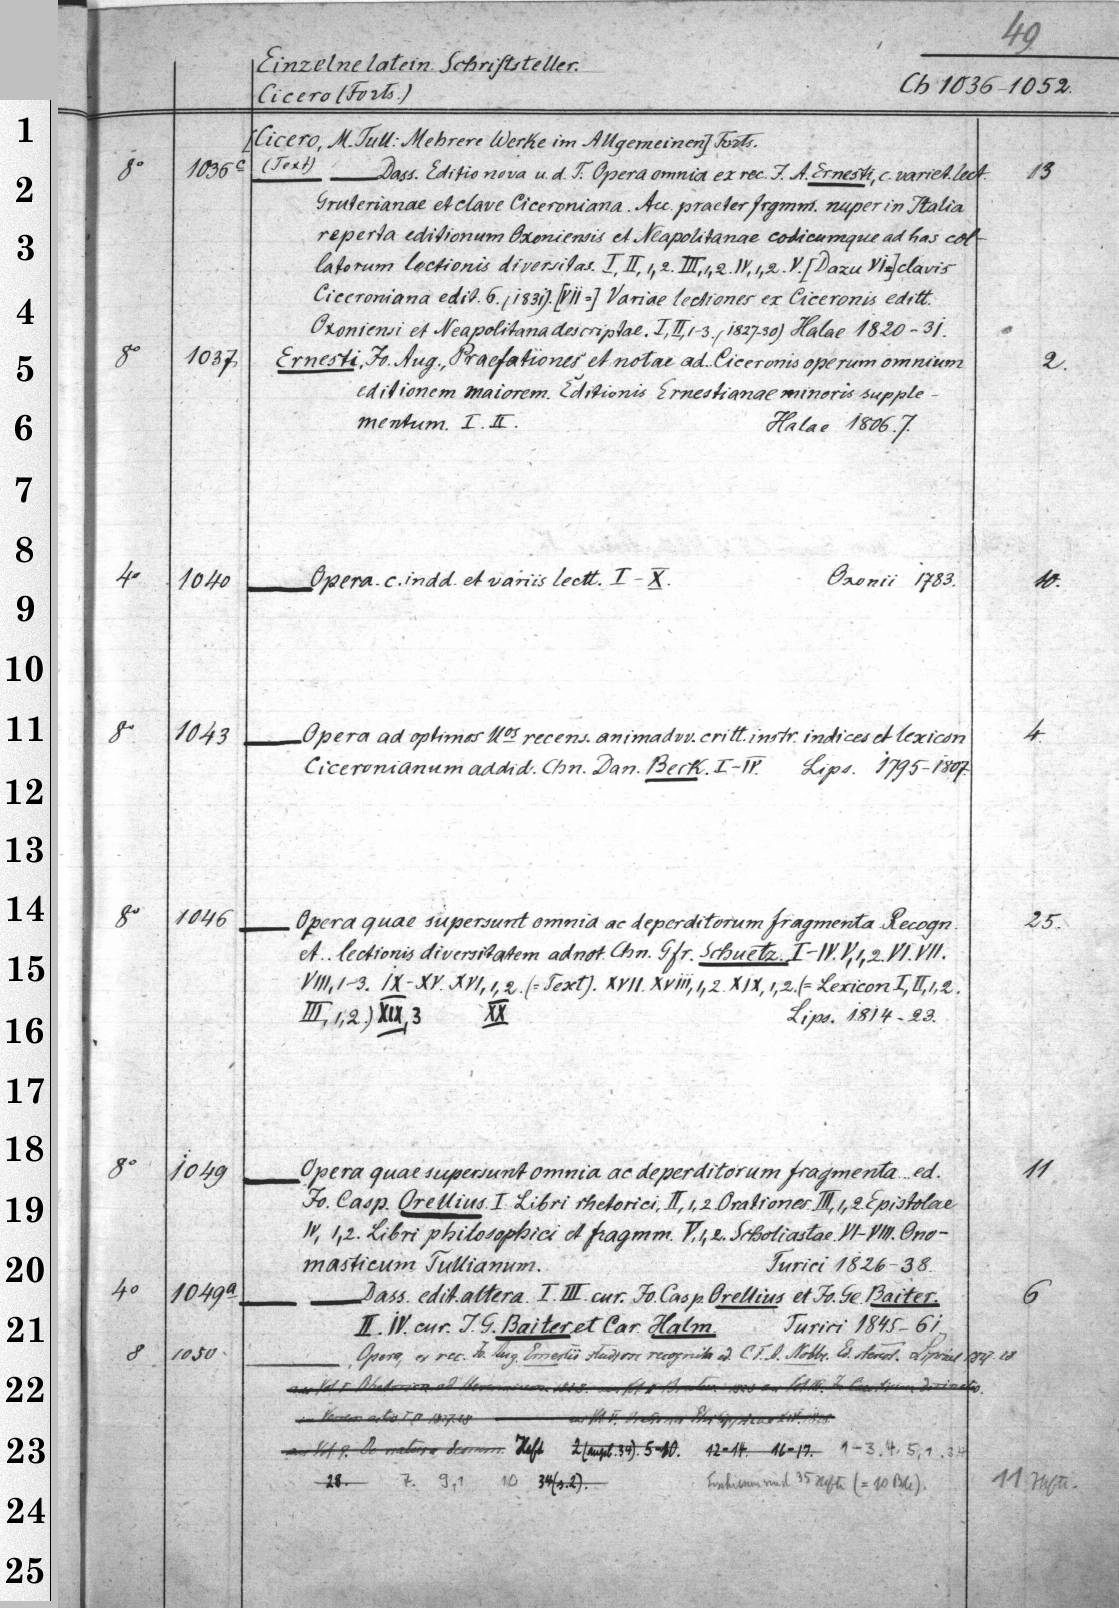 49
Einzelne latein. Schriftsteller.
Cicero (Forts.)
Ch 1036-1052.
[Cicero, M. Tull: Mehrere Werke im Allgemeinen] Forts.
8° 1036c (Text) Dass. Editio nova u. d. T. Opera omnia ex rec. J. A. Ernesti, c. variet. lect. 13
Gruterianae et clave Ciceroniana. Acc. praeter frgmm. nuper in Italia
reperta editionum Oxoniensis et Neapolitanae codicumque ad has col-
latorum lectionis diversitas. I, II,1,2. III,1,2. IV,1,2. V. [Dazu VI=] clavis
Ciceroniana edit. 6. (1831). [VII=] Variae lectiones ex Ciceronis editt.
Oxoniensi et Neapolitana descriptae. I, II,1-3. (1827-30) Halae 1820-31.
8° 1037 Ernesti, Jo. Aug., Praefationes et notae ad Ciceronis operum omnium 2.
editionem maiorem. Editionis Ernestianae minoris supple-
mentum. I. II. Halae 1806.7.
4° 1040 Opera c. indd. et variis lectt. I-X. Oxonii 1783. 10.
8° 1043 Opera ad optimos ll.os recens. animadvv. critt. instr. indices et lexicon 4.
Ciceronianum addid. Chn. Dan. Beck. I-IV. Lips. 1795-1807.
8° 1046 Opera quae supersunt omnia ac deperditorum fragmenta. Recogn. 25.
et.. lectionis diversitatem adnot. Chn. Gfr. Schuetz. I-IV. V,1,2. VI. VII.
VIII,1-3. IX-XV. XVI,1,2. (=Text). XVII. XVIII,1,2. XIX,1,2. (= Lexicon I, II,1,2.
III,1,2.) XIX,3 XX Lips. 1814-23.
8° 1049 Opera quae supersunt omnia ac deperditorum fragmenta.. ed. 11
Jo. Casp. Orellius. I. Libri rhetorici, II,1,2. Orationes. III,1,2. Epistolae
IV, 1,2. Libri philosophici et fragmm. V,1,2. Scholiastae. VI-VIII. Ono-
masticum Tullianum. Turici 1826-38.
4° 1049a Dass. edit. altera. I. III. cur. Jo. Casp. Orellius et Jo. Ge. Baiter. 6
II. IV. cur. J. G. Baiter et Car. Halm. Turici 1845-61.
8 1050 Opera, ex rec. Jo. Aug. Ernestii studiose recognita ed. C. F. A. Nobbe. Ed. stereot. Lipsiae 1827-28
Heft 2 (suppl. 34). 5-10. 12-14. 16-17. 1-3. 4. 5,1.
28. 7. 9,1 10 34(s.2). 35 Hefte (= 10 Bde). 11 Hefte.
1
2
3
4
5
6
7
8
9
10
11
12
13
14
15
16
17
18
19
20
21
22
23
24
25